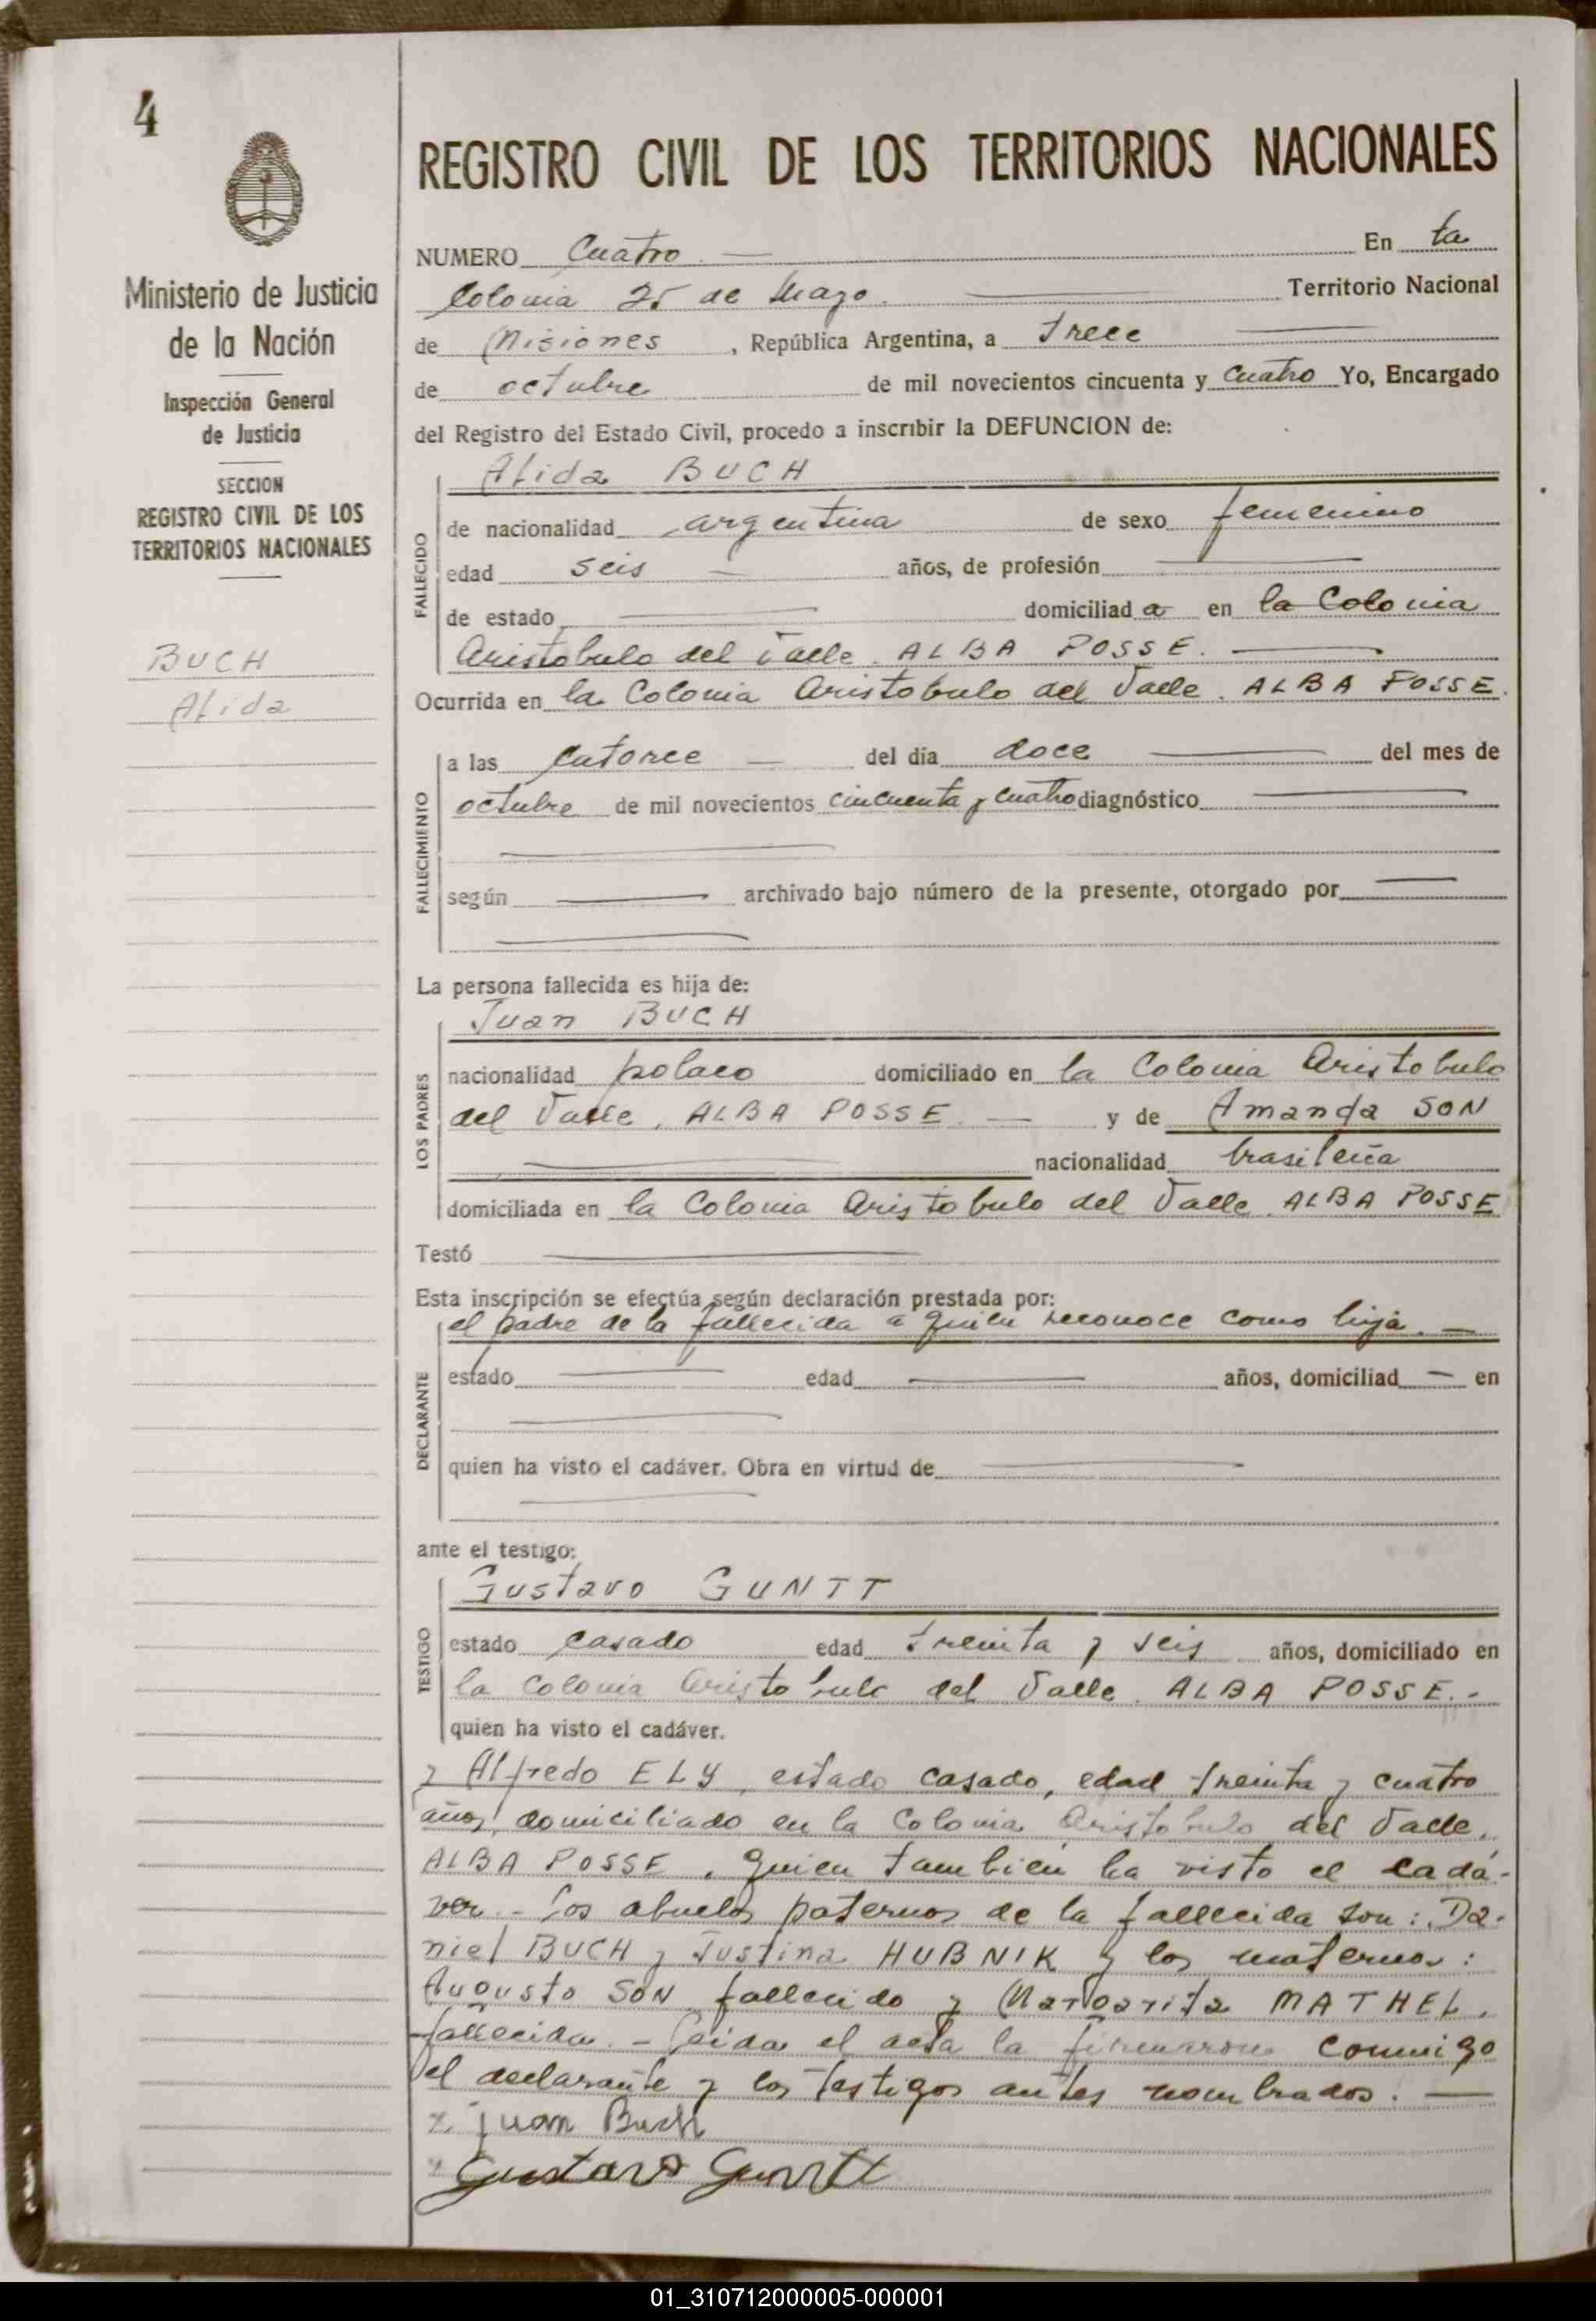 4
Ministerio de Justicia
de la Nación
Inspección General
de Justicia
SECCION
REGISTRO CIVIL DE LOS
TERRITORIOS NACIONALES
BUCH
Alida
REGISTRO CIVIL DE LOS TERRITORIOS NACIONALES
NUMERO Cuatro. — En la
Colonia 25 de Mayo. — Territorio Nacional
de Misiones, República Argentina, a trece —
de octubre de mil novecientos cincuenta y cuatro Yo, Encargado
del Registro del Estado Civil, procedo a inscribir la DEFUNCION de:
Alida BUCH
FALLECIDO
de nacionalidad argentina de sexo femenino
edad seis — años, de profesión —
de estado — domiciliad a en la Colonia
Aristobulo del Valle. ALBA POSSE. —
Ocurrida en la Colonia Aristobulo del Valle. ALBA POSSE.
FALLECIMIENTO
a las catorce — del día doce — del mes de
octubre de mil novecientos cincuenta y cuatro diagnóstico —
—
según — archivado bajo número de la presente, otorgado por —
—
La persona fallecida es hija de:
Juan BUCH
LOS PADRES
nacionalidad polaco domiciliado en la Colonia Aristobulo
del Valle, ALBA POSSE. — y de Amanda SON
— nacionalidad brasileña
domiciliada en la Colonia Aristobulo del Valle. ALBA POSSE
Testó —
Esta inscripción se efectúa según declaración prestada por:
el padre de la fallecida a quien reconoce como hija. —
DECLARANTE
estado — edad — años, domiciliad — en
—
quien ha visto el cadáver. Obra en virtud de —
—
ante el testigo:
Gustavo GUNTT
TESTIGO
estado casado edad treinta y seis años, domiciliado en
la Colonia Aristobulo del Valle. ALBA POSSE.-
quien ha visto el cadáver.
y Alfredo ELY, estado casado, edad treinta y cuatro
años, domiciliado en la Colonia Aristobulo del Valle,
ALBA POSSE, quien también ha visto el cadá-
ver.- Los abuelos paternos de la fallecida son: Da-
niel BUCH y Justina HUBNIK y los maternos:
Augusto SON fallecido y Margarita MATHEL,
fallecida. - Leida el acta la firmaron conmigo
el declarante y los testigos antes nombrados. —
Juan Buch
Gustavo Guntt
01_310712000005-000001